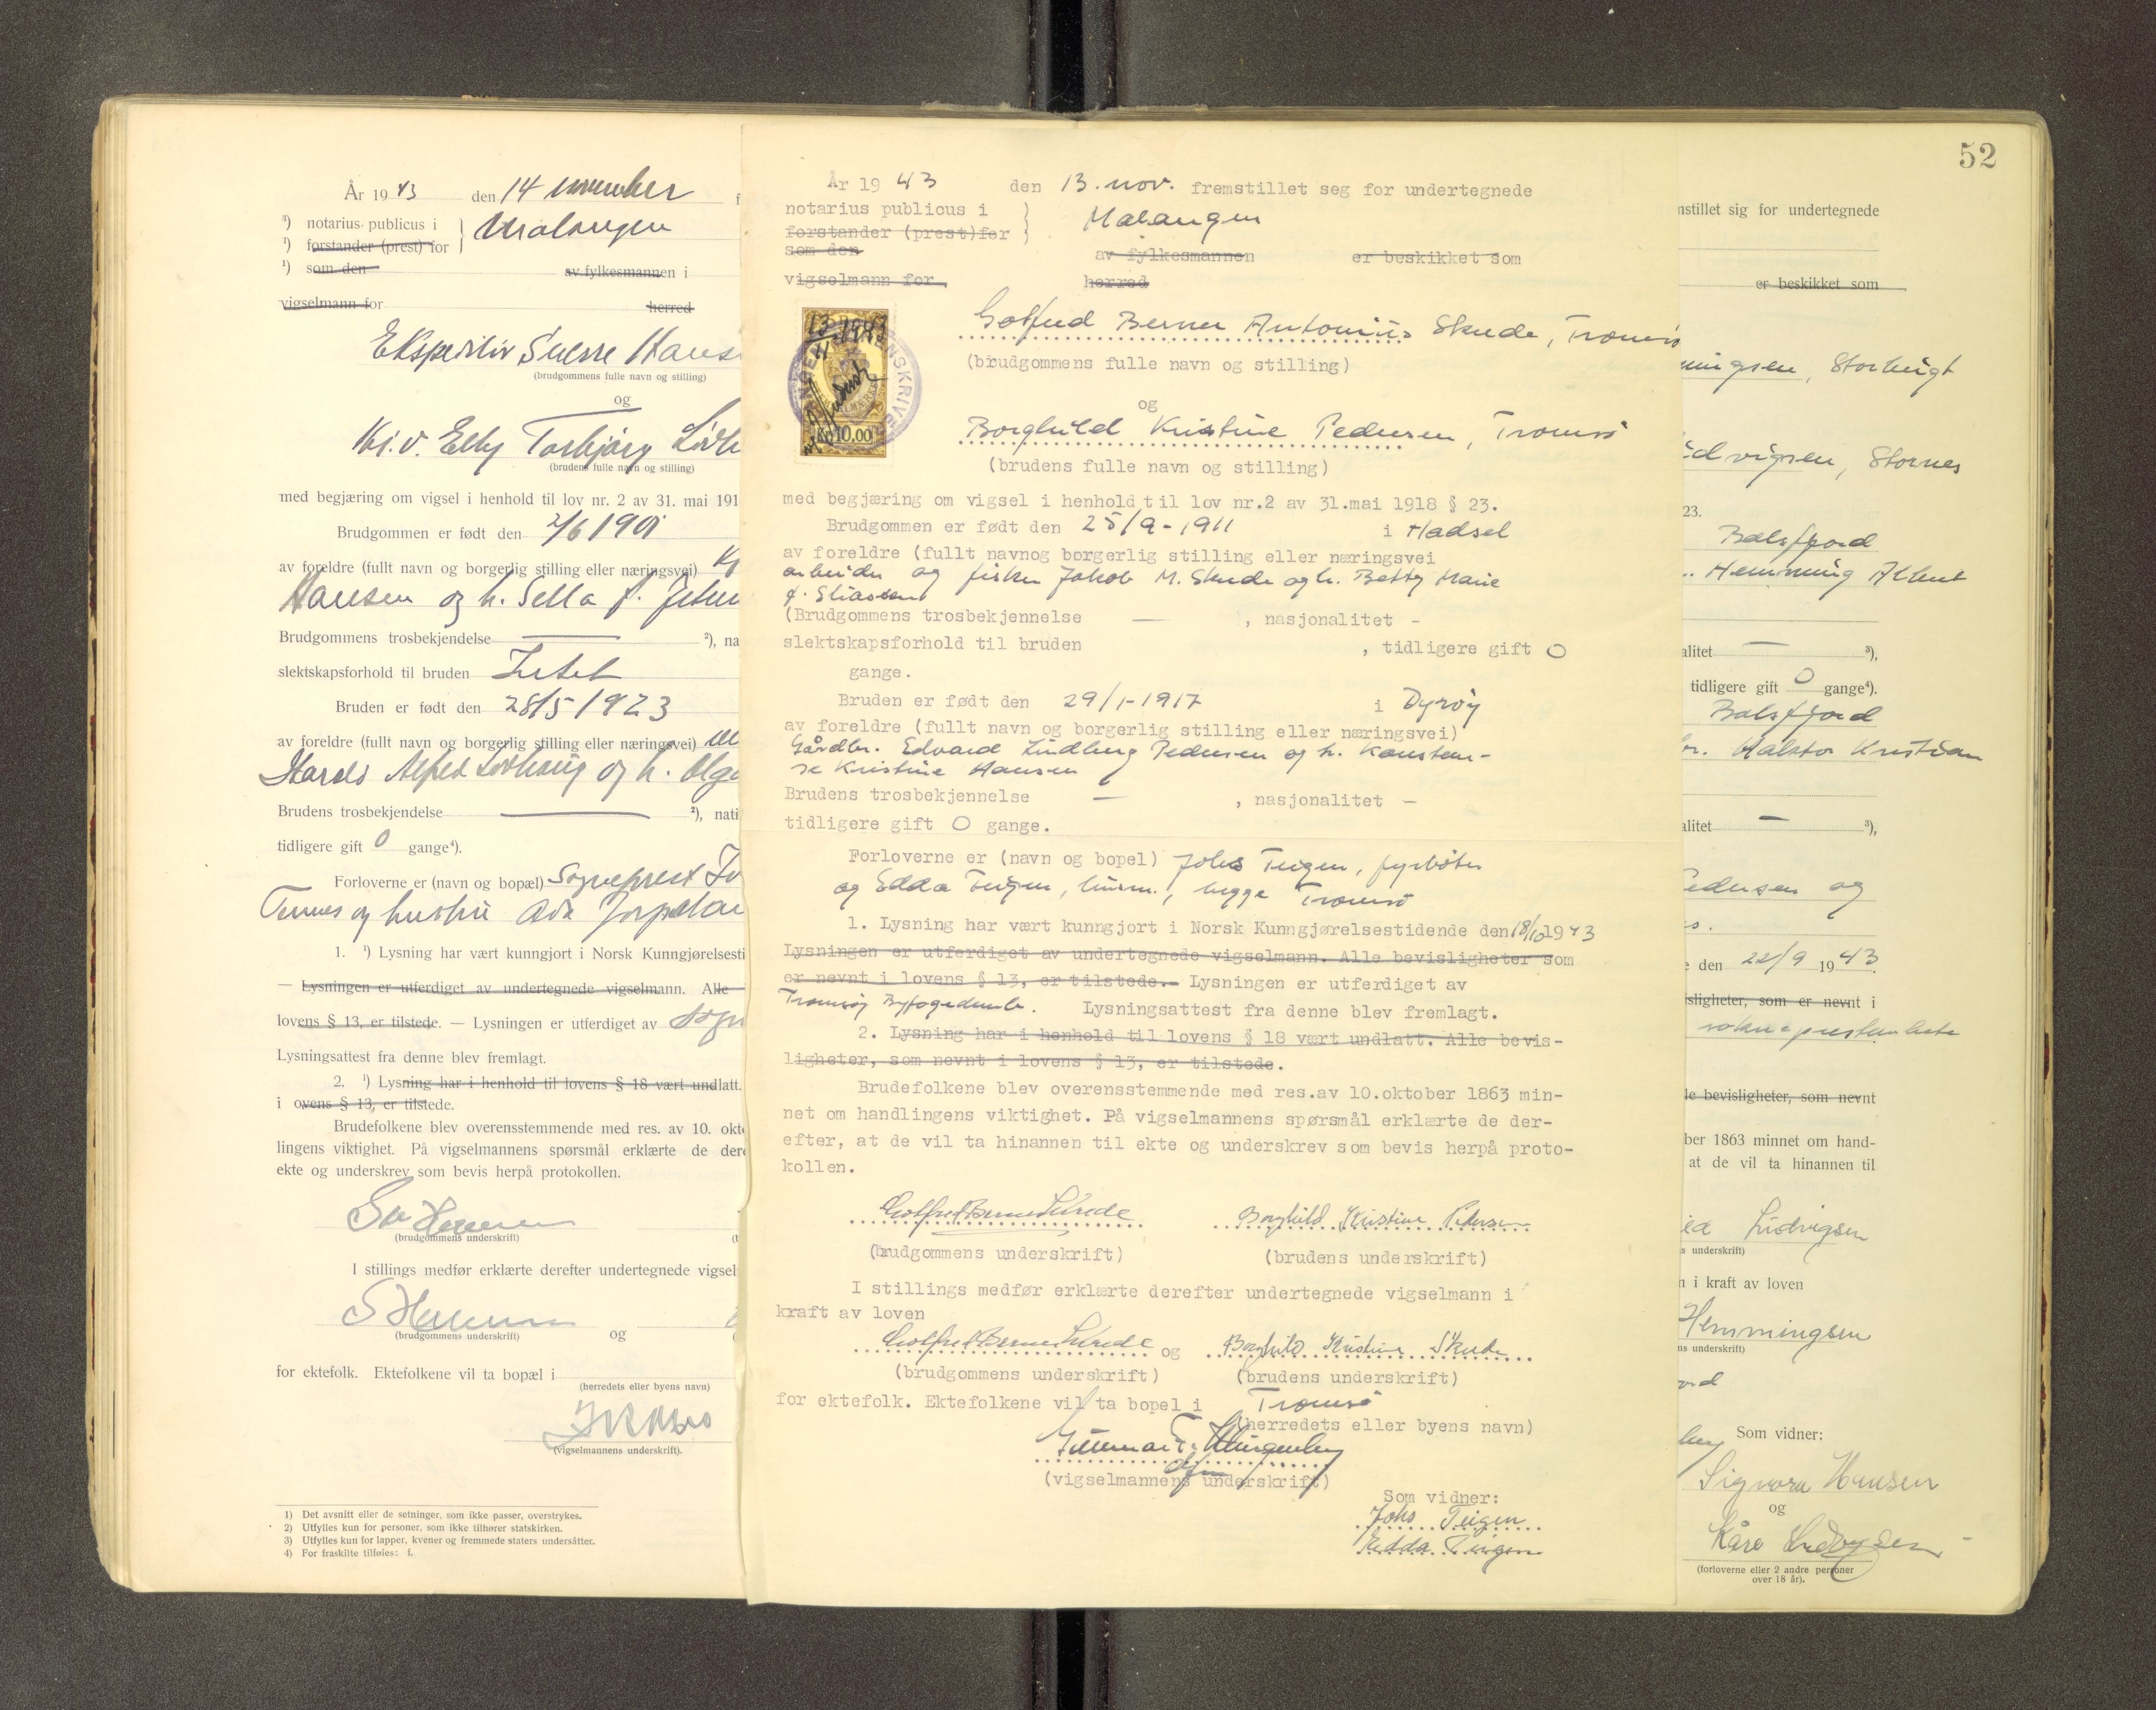 År 1943 den 14 november
¹) notarius publicus i
Malangen
¹) forstander (prest) for
¹) som den av fylkesmannen i
vigselmann for herred
Ekspeditør Sverre Hans
(brudgommens fulle navn og stilling)
og
Torbjørg
(brudens fulle navn og stilling)
med begjæring om vigsel i henhold til lov nr. 2 av 31. mai 191
Brudgommen er født den 2/6 1901
av foreldre (fullt navn og borgerlig stilling eller næringsvei)
Hansen og h. Sella f.
Brudgommens trosbekjendelse — ²), na
slektskapsforhold til bruden Intet
Bruden er født den 28/5 1923
av foreldre (fullt navn og borgerlig stilling eller næringsvei)
Alfred og h. Olga
Brudens trosbekjendelse — ²), nati
tidligere gift 0 gange⁴).
Forloverne er (navn og bopæl) Sogneprest
og hustru
1. ¹) Lysning har vært kunngjort i Norsk Kunngjørelsesti
— Lysningen er utferdiget av undertegnede vigselmann. Alle
lovens § 13, er tilstede. — Lysningen er utferdiget av Sogn
Lysningsattest fra denne blev fremlagt.
2. ¹) Lysning har i henhold til lovens § 18 vært undlatt.
i ovens § 13, er tilstede.
Brudefolkene blev overensstemmende med res. av 10. okt
lingens viktighet. På vigselmannens spørsmål erklærte de der
ekte og underskrev som bevis herpå protokollen.
(brudgommens underskrift)
I stillings medfør erklærte derefter undertegnede vigsel
S Hansen
(brudgommens underskrift) og
for ektefolk. Ektefolkene vil ta bopæl i
(herredets eller byens navn)
(vigselmannens underskrift).
1) Det avsnitt eller de setninger, som ikke passer, overstrykes.
2) Utfylles kun for personer, som ikke tilhører statskirken.
3) Utfylles kun for lapper, kvener og fremmede staters undersåtter.
4) For fraskilte tilføies: f.
År 1943 den 13. nov. fremstillet seg for undertegnede
notarius publicus i
Malangen
forstander (prest) for
som den av fylkesmannen er beskikket som
vigselmann for herred
Gotfred Berner Antonius Skrede, Tromsø
(brudgommens fulle navn og stilling)
og
Borghild Kristine Pedersen, Tromsø
(brudens fulle navn og stilling)
Kr 10,00
med begjæring om vigsel i henhold til lov nr.2 av 31.mai 1918 § 23.
Brudgommen er født den 25/9-1911 i Hadsel
av foreldre (fullt navnog borgerlig stilling eller næringsvei
arbeider og fisker Jakob M. Skrede og h. Betty Marie
f. Eliassen
(Brudgommens trosbekjennelse — , nasjonalitet -
slektskapsforhold til bruden , tidligere gift 0
gange.
Bruden er født den 29/1-1917 i Dyrøy
av foreldre (fullt navn og borgerlig stilling eller næringsvei)
Gårdbr. Edvard Lindberg Pedersen og h. Konstan-
se Kristine Hansen
Brudens trosbekjennelse — , nasjonalitet —
tidligere gift 0 gange.
Forloverne er (navn og bopel) Johs Teigen, fyrbøter
og Edda Teigen, husm., begge Tromsø
1. Lysning har vært kunngjort i Norsk Kunngjørelsestidende den 18/10 1943
Lysningen er utferdiget av undertegnede vigselmann. Alle bevisligheter som
er nevnt i lovens § 13, er tilstede.- Lysningen er utferdiget av
Tromsøy Byfogdemb. Lysningsattest fra denne blev fremlagt.
2. Lysning har i henhold til lovens § 18 vært undlatt. Alle bevis-
ligheter, som nevnt i lovens § 13, er tilstede.
Brudefolkene blev overensstemmende med res.av 10.oktober 1863 min-
net om handlingens viktighet. På vigselmannens spørsmål erklærte de der-
efter, at de vil ta hinannen til ekte og underskrev som bevis herpå proto-
kollen.
Gotfred Berner Skrede Borghild Kristine Pedersen
(brudgommens underskrift) (brudens underskrift)
I stillings medfør erklærte derefter undertegnede vigselmann i
kraft av loven
Gotfred Berner Skrede og Borghild Kristine Skrede
(brudgommens underskrift) (brudens underskrift)
for ektefolk. Ektefolkene vil ta bopel i Tromsø
(herredets eller byens navn)
(vigselmannens underskrift)
Som vidner:
Johs Teigen
Edda Teigen
52
nstillet sig for undertegnede
er beskikket som
mingsen, Storbugt
edvigsen, Stornes
23.
Balsfjord
Hemming Albert
alitet — ³),
tidligere gift 0 gange⁴).
Balsfjord
br. Halvtor Kristian
alitet — ³),
Pedersen og
s.
e den 22/9 1943.
isligheter, som er nevnt i
sokneprestembete
le bevisligheter, som nevnt
ber 1863 minnet om hand-
at de vil ta hinannen til
Ludvigsen
s underskrift)
n i kraft av loven
Hemmingsen
ns underskrift)
ord
Som vidner:
Signora Hansen
og
Kåre Ludvigsen
(forloverne eller 2 andre personer
over 18 år).